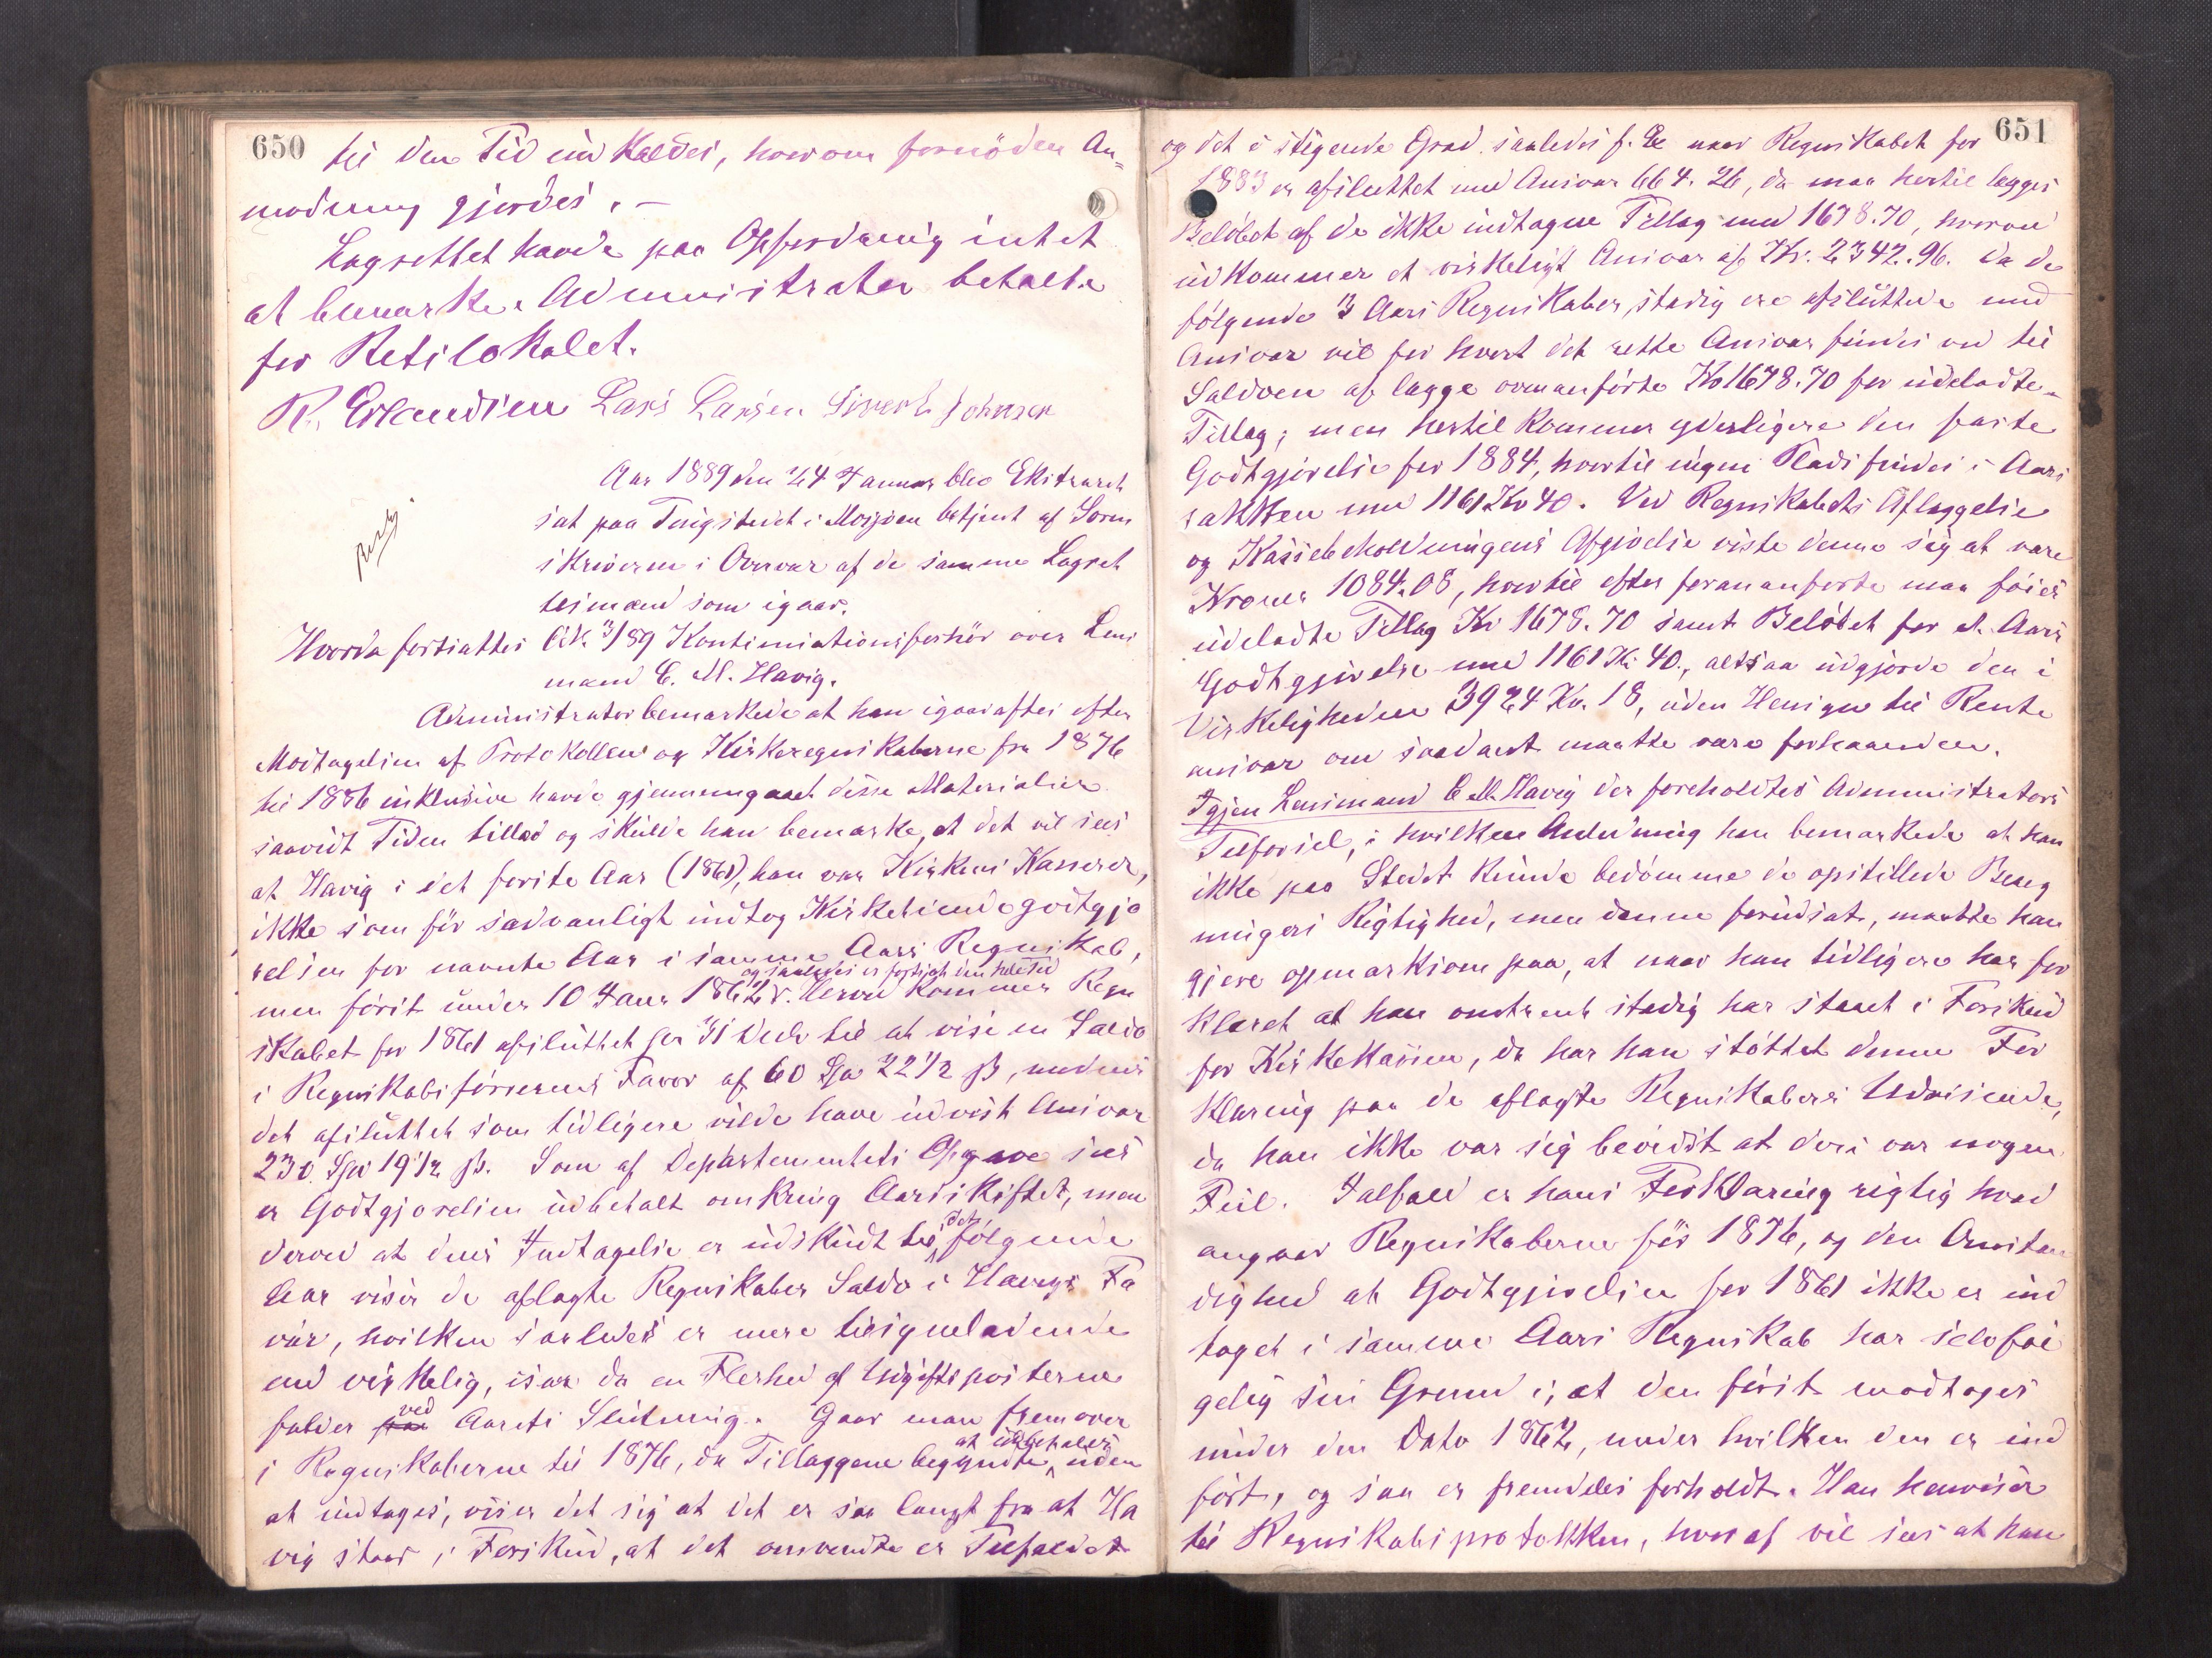 650
til den Tid indkaldes, hvorom fornöden An=
modning gjordes. —
Lagrettet havde paa Opfordring intet
at bemærke. Administrator betalte
for Retslokalet.
R. Erlendsen Lars Larsen Sivert Johnsen
Aar 1889 den 24 Januar blev Extraret
sat paa Tingstedet i Mosjöen betjent af Soren
skriveren i Overvær af de samme Lagret
tesmænd som igaar.
Hvorda fortsattes Lit. 3/89 Kontinuationsforhör over Lens
mand C. M. Havig.
Administrator bemærkede at han igaaraftes efter
Modtagelsen af Protokollen og Kirkeregnskaberne fra 1876
til 1886 inklusive havde gjennemgaaet disse Materialier
saavidt Tiden tillod og skulde han bemærke, at det vil sees
at Havig i det forste Aar (1861), han var Kirkens Kasserer,
ikke som för sædvanligt indtog Kirketiendegodtgjö
relsen for nævnte Aar i samme Aars Regnskab,
men först under 10 Januar 1862
og saaledes er fortsat den hele Tid
. Herved kommer Regn
skabet for 1861 afsluttet per 31 Decbr til at vise en Saldo
i Regnskabsförerens Favør af 60 Spd 22 1/2 ß, medens
det afsluttet som tidligere vilde have udvist Ansvar
230 Spd 19 1/2 ß. Som af Departementets Opgave sees
er Godtgjörelsen udbetalt omkring Aarsskiftet, men
derved at dens Indtagelse er udskudt til det fölgende
Aar viser de aflagte Regnskaber Saldo i Havigs Fa
vör, hvilken saaledes er mere tilsyneladende
end virkelig, især da en Flerhed af Udgiftsposterne
falder paa ved Aarets Slutning. Gaar man fremover
i Regnskaberne til 1876, da Tillæggene begyndte at udbetales uden
at indtages, viser det sig at det er saa langt fra at Ha
vig staar i Forskud, at det omvendte er Tilfældet
651
og det i stigende Grad saaledes f. Ex naar Regnskabet for
1883 er afsluttet med Ansvar 664. 26, da maa hertil lægges
Belöbet af de ikke indtagne Tillæg med 1678.70, hvorved
udkommer et virkeligt Ansvar af Kr. 2342.96. Da de
fölgende 3 Aars Regnskaber stadig ere afsluttede med
Ansvar vil for hvert det rette Ansvar findes ved til
Saldoen at lægge ovenanförte Kr 1678.70 for udeladte
Tillæg; men hertil kommer yderligere den faste
Godtgjörelse for 1884, hvortil ingen Plads findes i Aars
rækken med 1161 Kr 40. Ved Regnskabets Aflæggelse
og Kassebeholdningens Afgivelse viste denne sig at være
Kroner 1084.08, hvortil efter forananförte maa föies
udeladte Tillæg Kr 1678.70 samt Belöbet for et Aars
Godtgjörelse med 1161 Kr 40., altsaa udgjorde den i
Virkeligheden 3924 Kr. 18, uden Hensyn til Rente
ansvar om saadant maatte være forhaanden.
Igjen Lensmand C. M. Havig der foreholdtes Administrators
Tilförsel, i hvilken Anledning han bemærkede at han
ikke paa Stedet kunde bedömme de opstillede Bereg
ningers Rigtighed, men denne forudsat, maatte han
gjöre opmærksom paa, at naar han tidligere har for
klaret at han omtrent stadig har staaet i Forskud
for Kirkekassen, da har han stöttet denne For
klaring paa de aflagte Regnskabers Udvisende,
da han ikke var sig bevidst at deri var nogen
Feil. Ialfald er hans Forklaring rigtig hvad
angaar Regnskaberne för 1876, og den Omstæn
dighed at Godtgjörelsen for 1861 ikke er ind
taget i samme Aars Regnskab har selvföl
gelig sin Grund i, at den först modtoges
under den Dato 1862, under hvilken den er ind
fört, og saa er fremdeles forholdt. Han henviser
til Regnskabsprotokollen, hvoraf vil sees at han